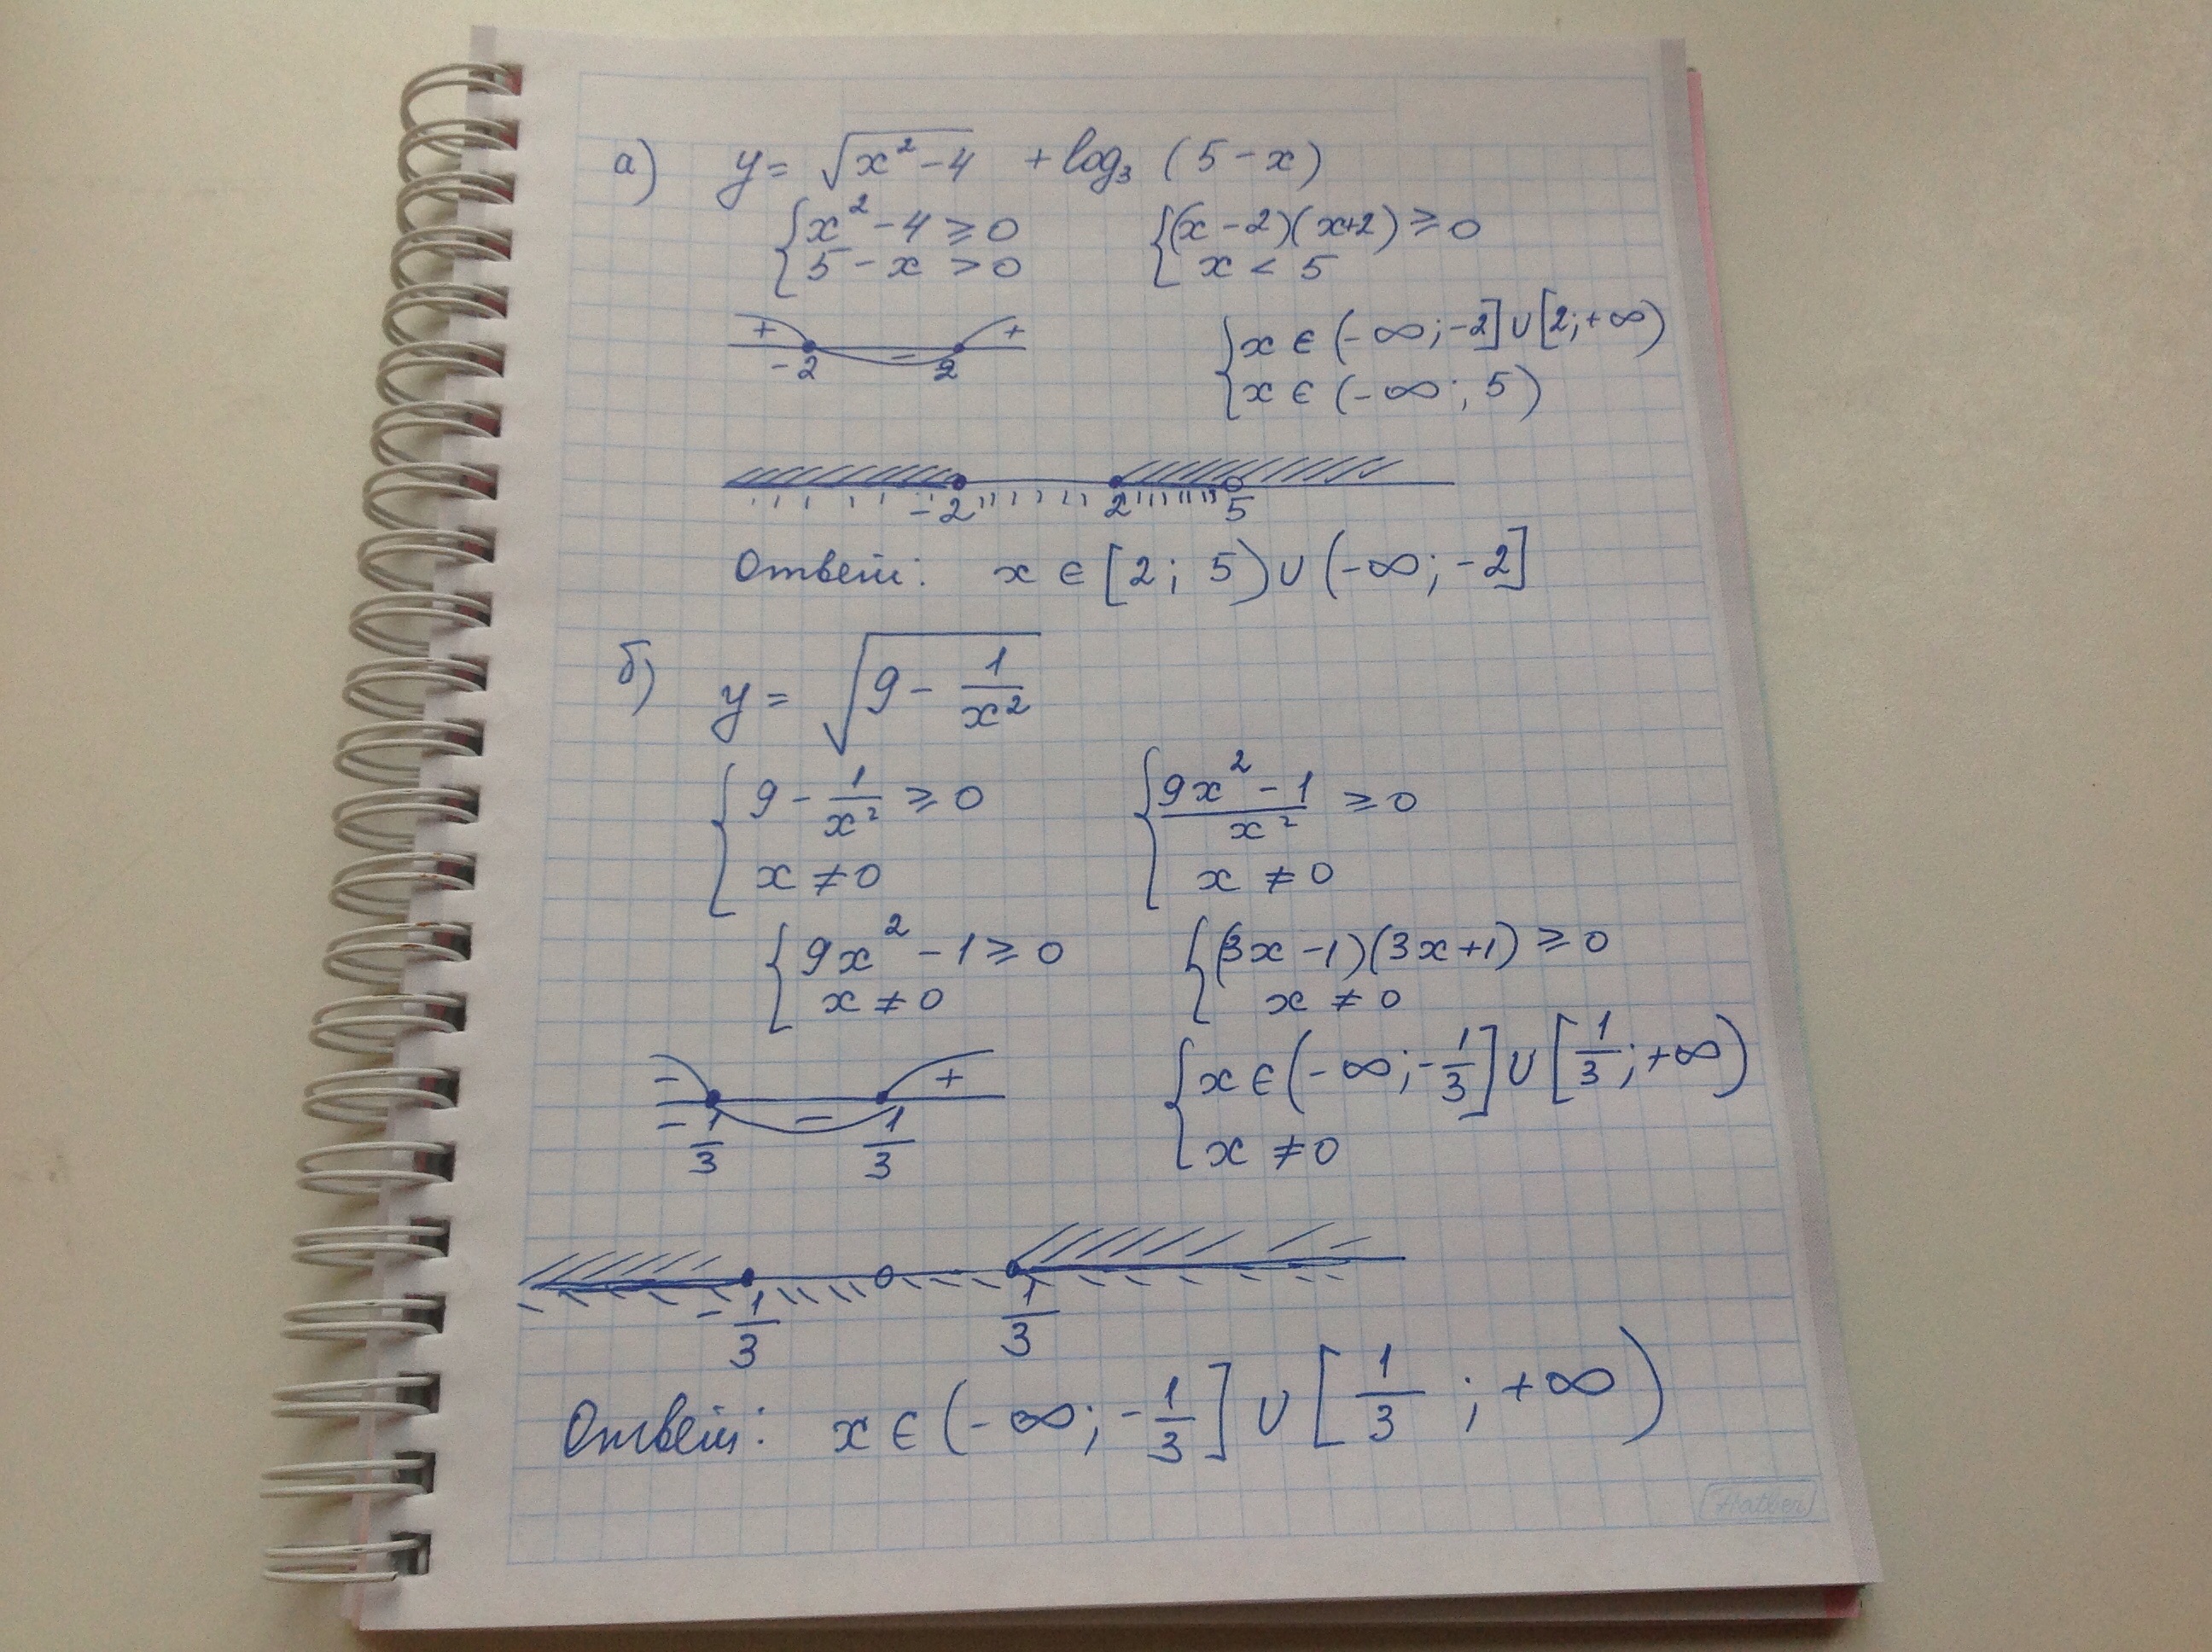 а) y = √(x² - 4) + log₃ (5 - x)
{ x² - 4 ≥ 0 { (x - 2)(x+2) ≥ 0
{ 5 - x > 0 { x < 5
+ - +
-2 2
{ x ∈ (-∞; -2] ∪ [2; +∞)
{ x ∈ (-∞; 5)
-2 2 5
Ответ: x ∈ [2; 5) ∪ (-∞; -2]
б) y = √(9 - 1/x²)
{ 9 - 1/x² ≥ 0 { (9x² - 1)/x² ≥ 0
{ x ≠ 0 { x ≠ 0
{ 9x² - 1 ≥ 0 { (3x - 1)(3x + 1) ≥ 0
{ x ≠ 0 { x ≠ 0
- - +
-1/3 1/3
{ x ∈ (-∞; -1/3] ∪ [1/3; +∞)
{ x ≠ 0
-1/3 1/3
Ответ: x ∈ (-∞; -1/3] ∪ [1/3; +∞)
Hatber